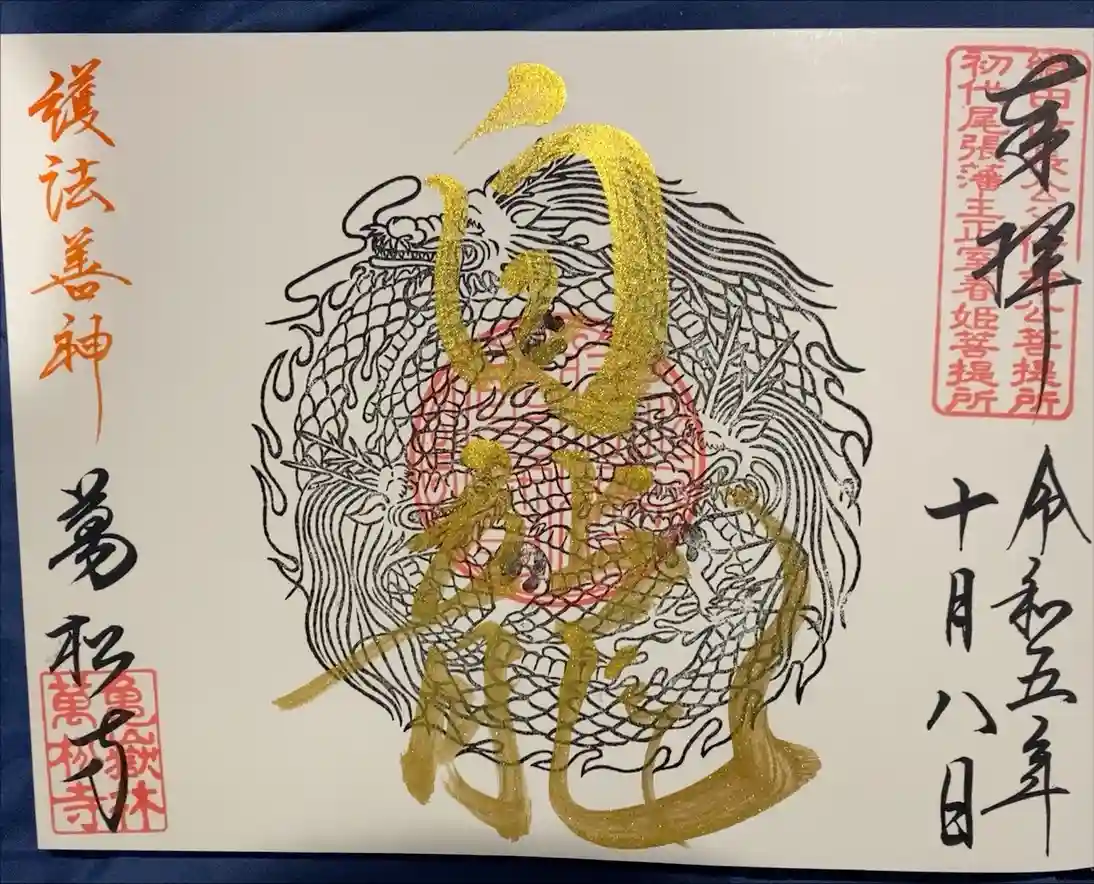 奉拝
織田信長公父信秀公菩提所
初代尾張藩主正室春姫菩提所
令和五年
十月八日
白龍
護法善神
萬松寺
亀嶽林
萬松寺